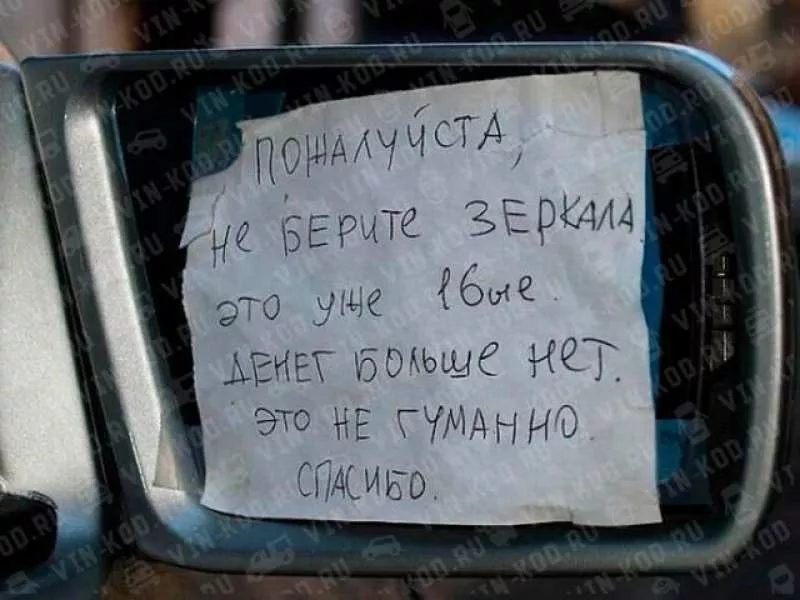 ПОЖАЛУЙСТА,
НЕ БЕРИТЕ ЗЕРКАЛА.
ЭТО УЖЕ 16ые.
ДЕНЕГ БОЛЬШЕ НЕТ.
ЭТО НЕ ГУМАННО.
СПАСИБО.
VIN-KOD.RU